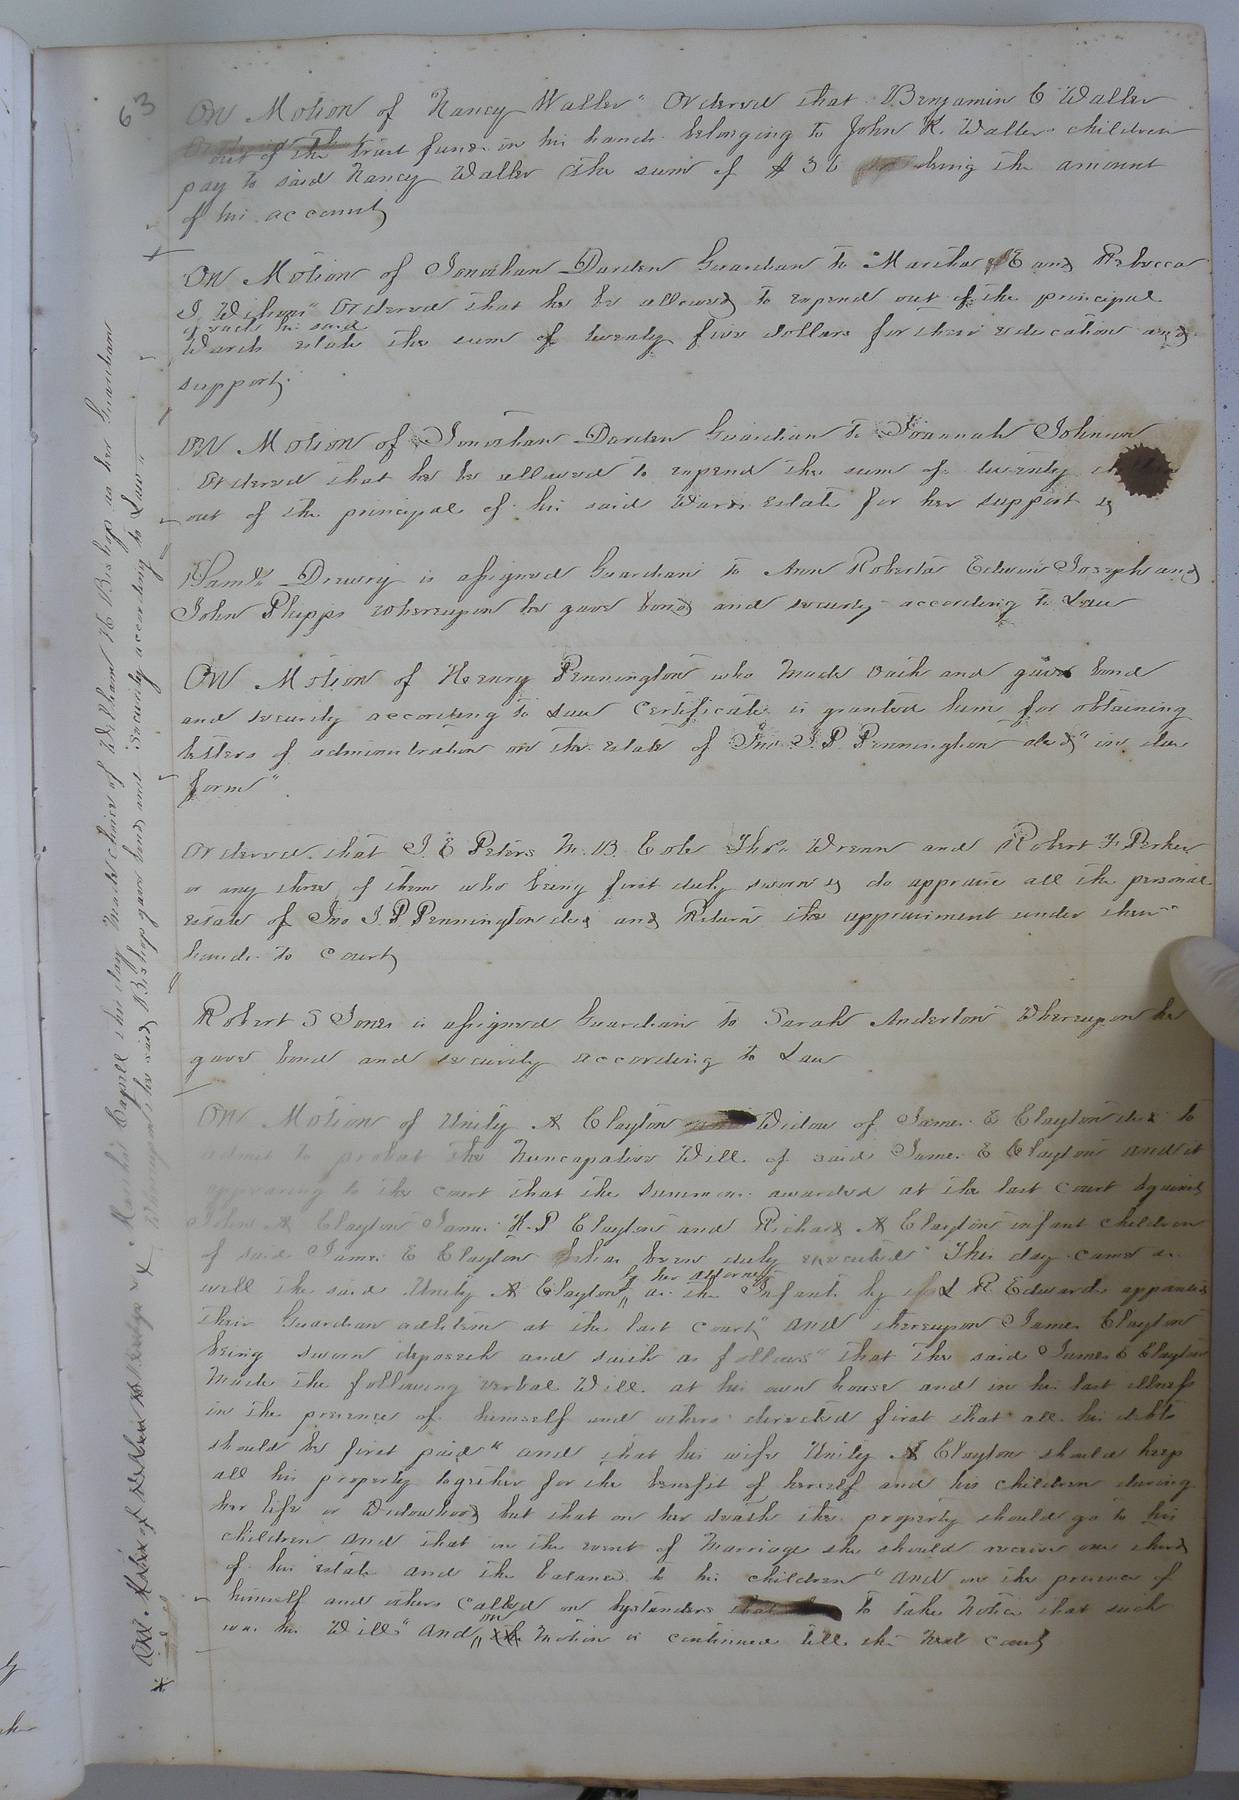 63
On Motion of Nancy Waller" Ordered that Benjamin C Waller
out of the trust funds in his hands belonging to John K. Wallers children
pay to said Nancy Waller the sum of $ 36 being the amount
of his account
On Motion of Jonathan Darden Guardian to Martha E and Rebecca
J. Ordered that he be allowed to expend out of the principal
of each his said
Wards estate the sum of twenty five dollars for their education and
support.
On Motion of Jonathan Darden Guardian to Joannah Johnson
Ordered that he be allowed to expend the sum of twenty
out of the principal of his said Wards estate for her support &
Saml. Drewry is assigned Guardian to Ann Roberta Edwin Joseph and
John Phipps whereupon he gave bond and security according to Law
On Motion of Henry Pennington who Made oath and gave bond
and security according to Law Certificate is granted him for obtaining
letters of administration on the estate of Jno. J. P Pennington decd" in due
form"
Ordered that J. E Peters M. B. Cole Thos. Wrenn and Robert F. Parker
or any three of them who being first duly sworn & do appraise all the personal
estate of Jno J. P. Pennington decd and Return the appraisment under their
hands to Court
Robert S Jones is assigned Guardian to Sarah Anderton Whereupon he
gave bond and security according to Law
On Motion of Unity A Clayton Widow of James E Clayton decd to
admit to probat the Nuncapative Will of said James E Clayton and it
appearing to the court that the summons awarded at the last Court against
John A Clayton James H. P Clayton and Richard A Clayton infant children
of said James E Clayton has been duly executed" This day came as
by her attorney
well the said Unity A Clayton as the Infants by R Edwards appointed
their Guardian adlitem at the last Court" And thereupon James Clayton
being sworn deposeth and saith as follows" that the said James E Clayton
Made the following verbal Will at his own house and in his last illness
in the presence of himself and others directed first that all his debts
should be first paid" and that his wife Unity A Clayton should keep
all his property together for the benefit of herself and his children during
her life or Widowhood but that on her death the property should go to his
children and that in the event of Marriage she should receive one third
of his estate and the balance to his children" And in the presence of
himself and others called on bystanders to take Notice that such
was his Will" And on Motion is continued till the Next Court
x Martha Capell this day Made choice of William H Bishop as her Guardian
x Whereupon the said Bishop gave bond and Security according to Law